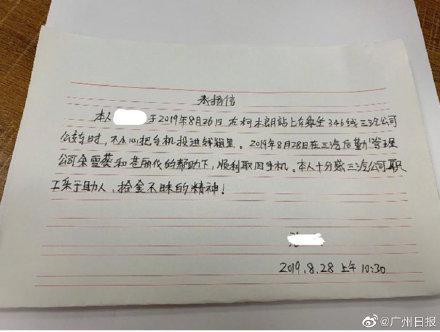 表扬信
本人 于2019年8月26日在柯木朗站上车乘坐346线三汽公司
公交车时,不小心把手机投进钱箱里。2019年8月28日在三汽后勤管理
公司余雪葵和 的帮助下,顺利取回手机。本人十分感 三汽公司职
工乐于助人,拾金不昧的精神!
2019.8.28 上午10:30
@广州日报